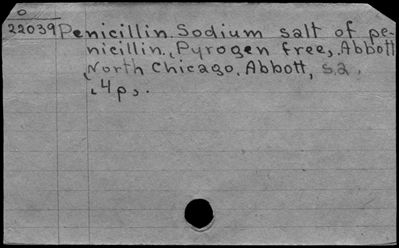 O
22039 Penicillin. Sodium salt of pe-
nicillin. Pyrogen free, Abbott
North Chicago, Abbott, s.a.
4p.